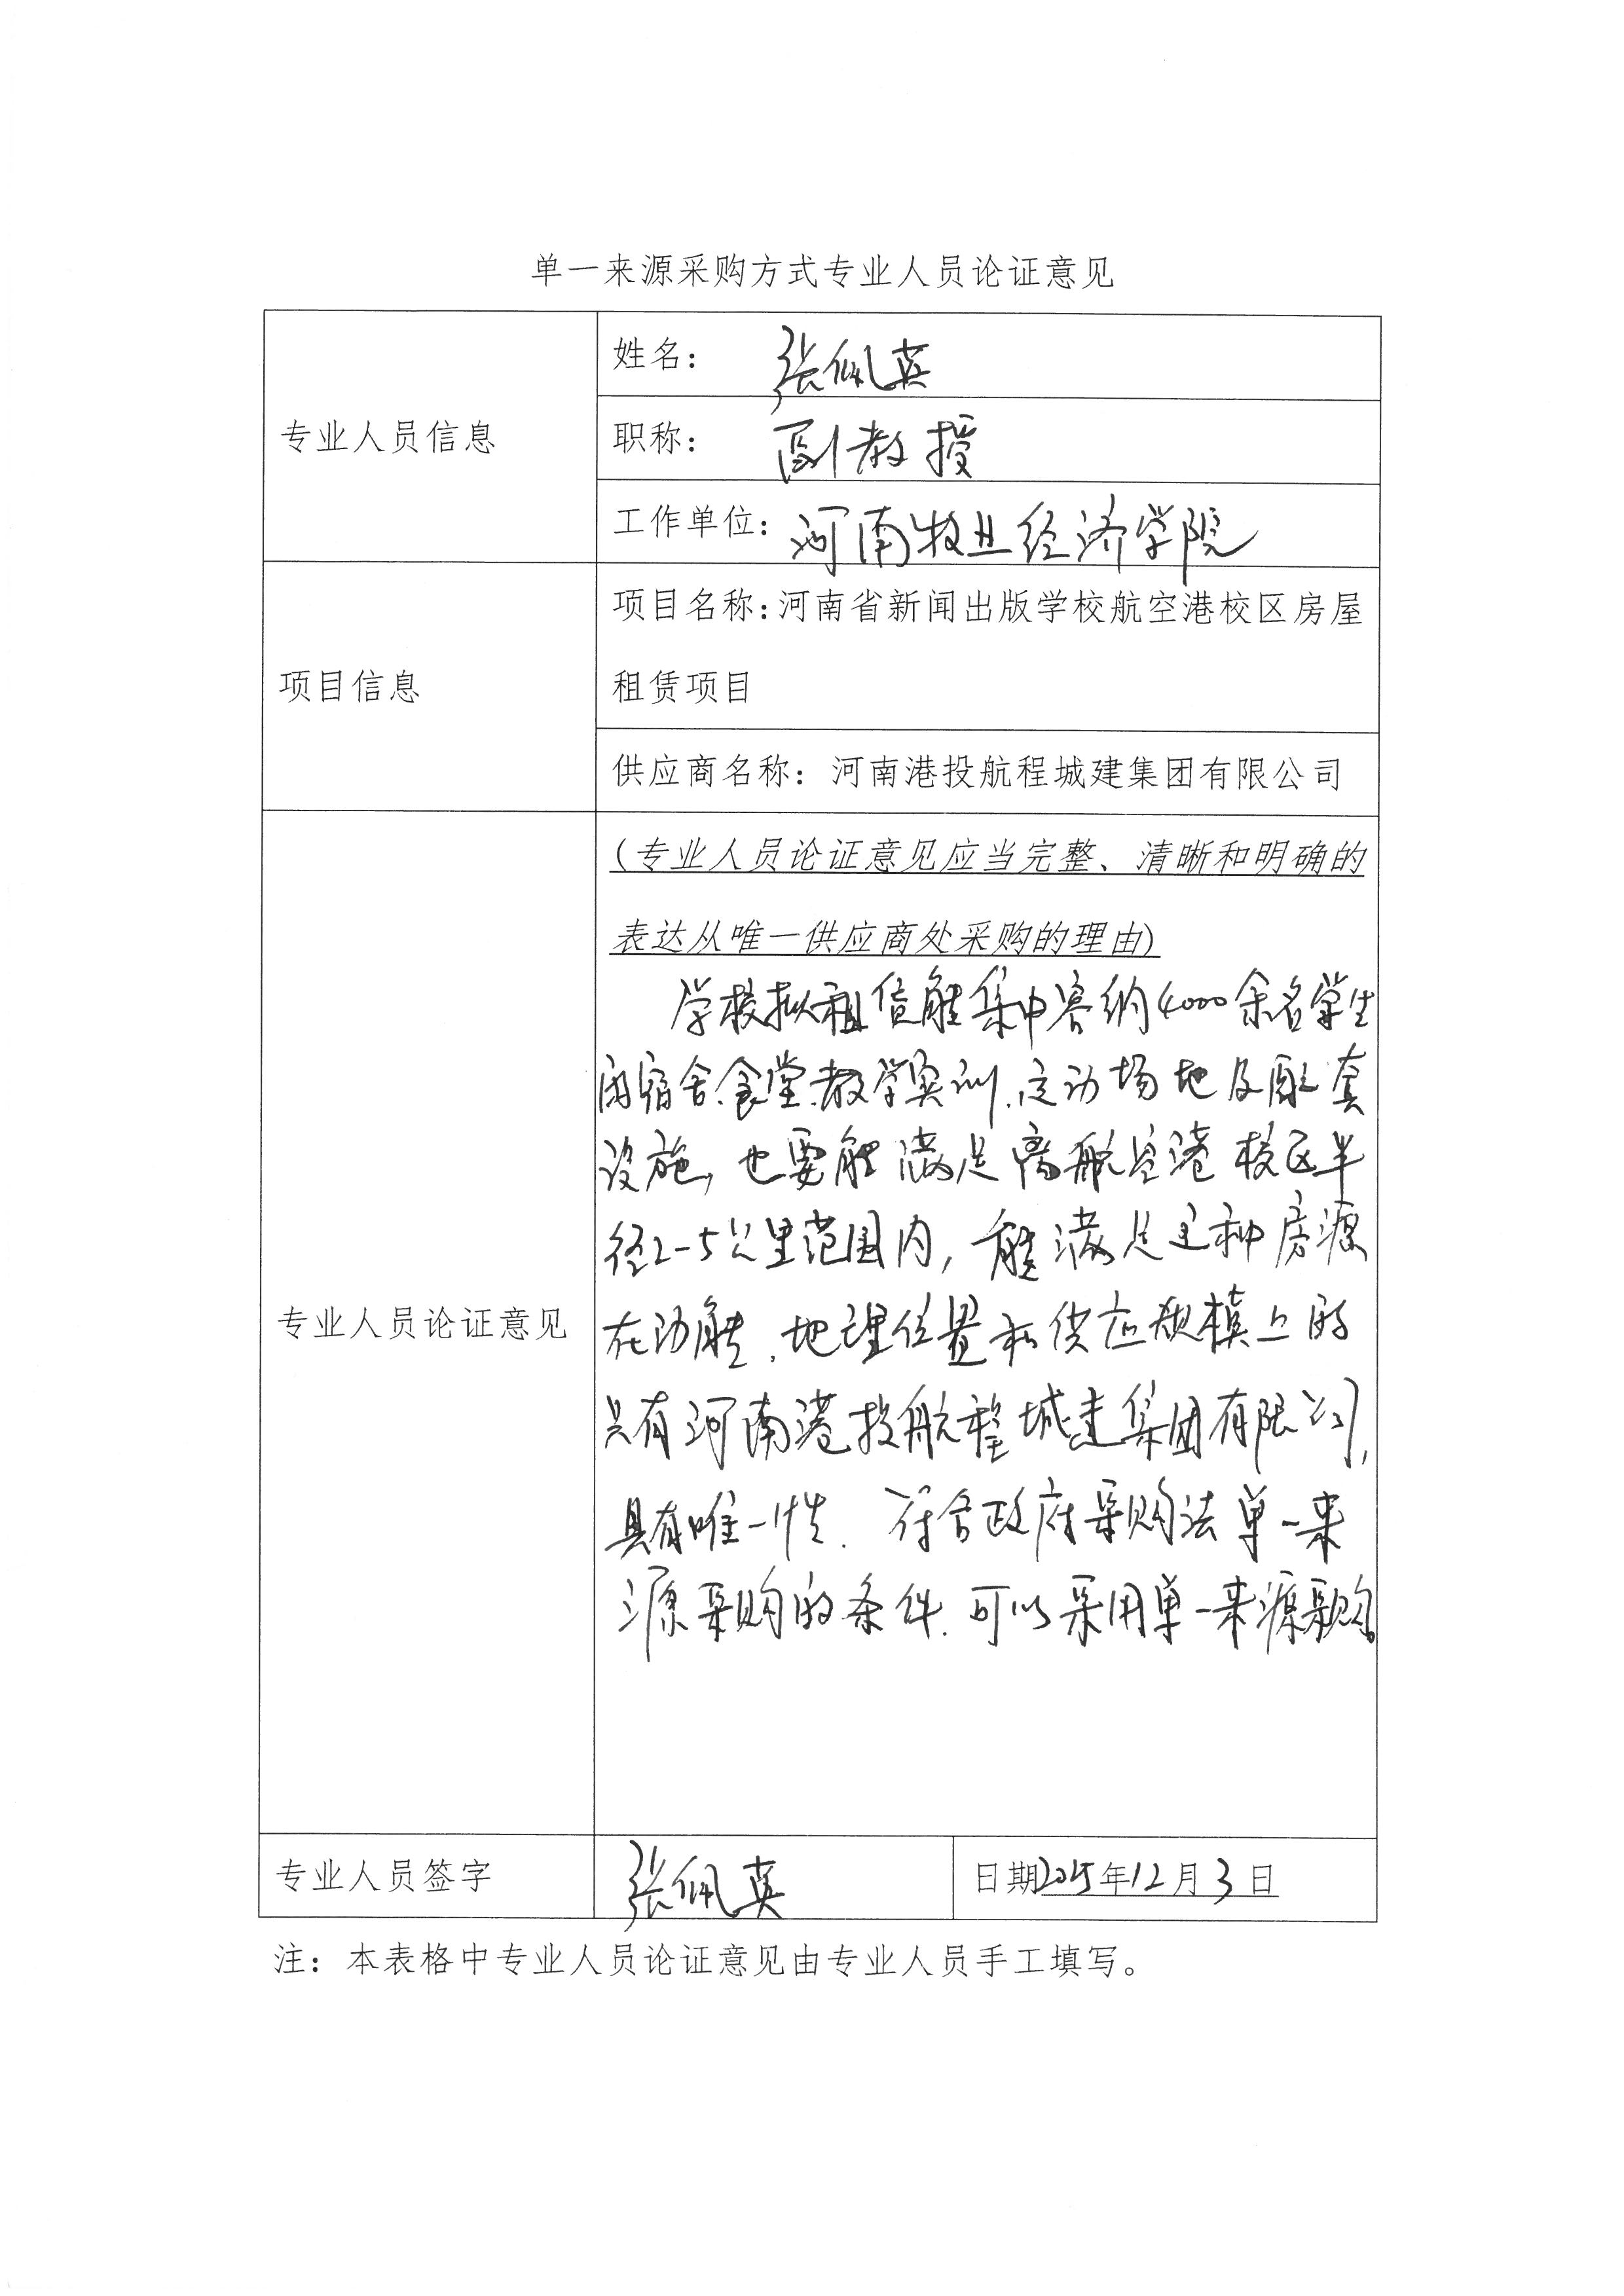 单一来源采购方式专业人员论证意见
专业人员信息
姓名： 张佩英
职称： 副教授
工作单位：河南牧业经济学院
项目信息
项目名称：河南省新闻出版学校航空港校区房屋
租赁项目
供应商名称：河南港投航程城建集团有限公司
专业人员论证意见
（专业人员论证意见应当完整、清晰和明确的
表达从唯一供应商处采购的理由）
学校拟租赁能集中容纳4000余名学生
的宿舍、食堂、教学实训、运动场地及配套
设施，也要能满足离航空港校区半
径2-5公里范围内，能满足这种房源
在功能、地理位置和供应规模上的
只有河南港投航程城建集团有限公司，
具有唯一性．符合政府采购法单一来
源采购的条件．可以采用单一来源采购。
专业人员签字
张佩英
日期2025年12月3日
注：本表格中专业人员论证意见由专业人员手工填写。